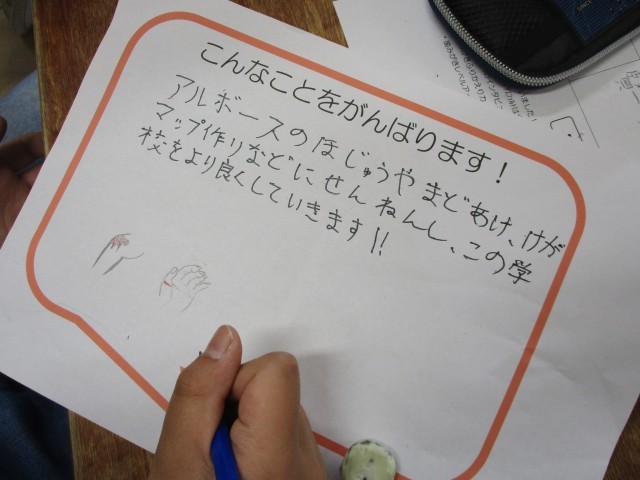 こんなことをがんばります！
アルボースのほじゅうやまどあけ、けが
マップ作りなどにせんねんし、この学
校をより良くしていきます!!